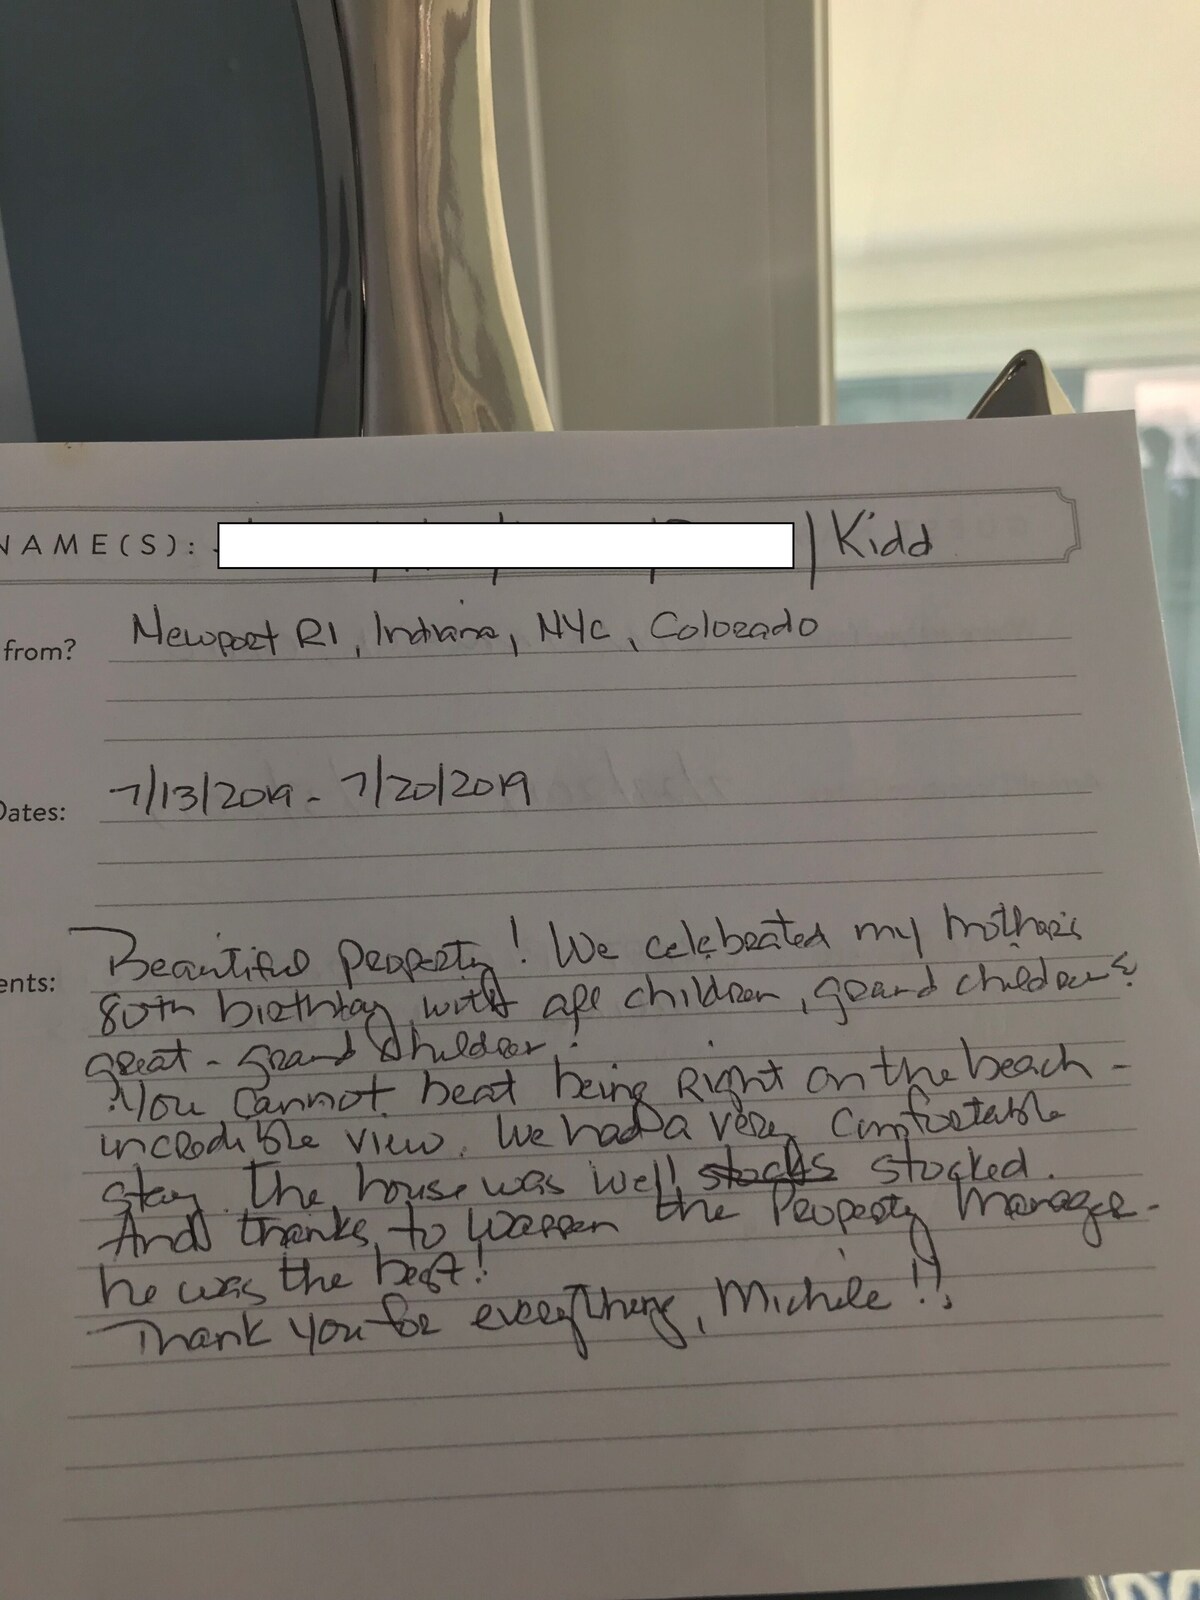 NAME(S): | Kidd
from? Newport RI, Indiana, NYC, Colorado
Dates: 7/13/2019 - 7/20/2019
ents: Beautiful Property! We celebrated my mother's
80th birthday with all children, grand children &
great-grand children!
You cannot beat being Right on the beach -
incredible view. We had a very comfortable
stay. The house was well stocks stocked.
And thanks to Warren the Property Manager -
he was the best!
Thank you for everything, Michele!!